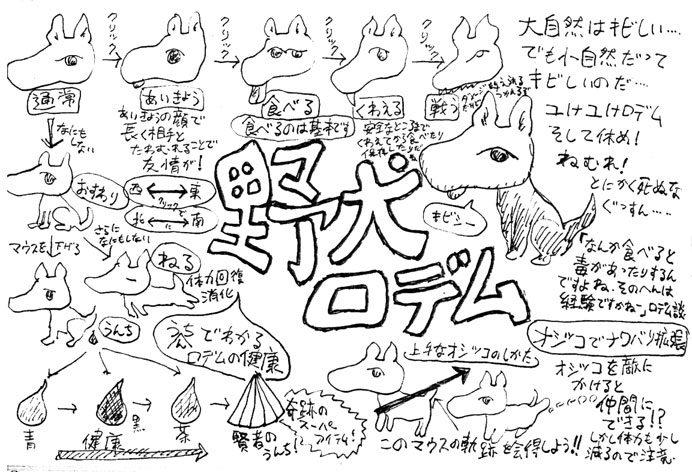 クリック
クリック
クリック
クリック
通常
あいきょう
食べる
くわえる
戦う
あいきょうの顔で
長く相手と
たわむれることで
友情が!
食べるのは基本です
安全なところまで
くわえてから食べたり
保存したりだ
大自然はキビしい…
でも小自然だって
キビしいのだ…
ユけユけロデム
そして休め!
ねむれ!
とにかく死ぬな
ぐっすん……
なにも
しない
おすわり
西 東
クリックで
北 に 南
さらに
なにもしない
マウスを下げる
ねる
体力回復
消化
うんち
うんちでわかる
ロデムの健康
野犬
ロデム
キビシー
「なんか食べると
毒があったりするん
ですよね。そのへんは
経験ですかね」ロデム談
オシッコでナワバリ拡張
オシッコを敵に
かけると
仲間に
できる!?
しかし体力も少し
減るので注意
上手なオシッコのしかた
このマウスの軌跡を会得しよう!!
青
健康
黒
茶
賢者の
うんち!
奇跡の
スーパー
アイテム!